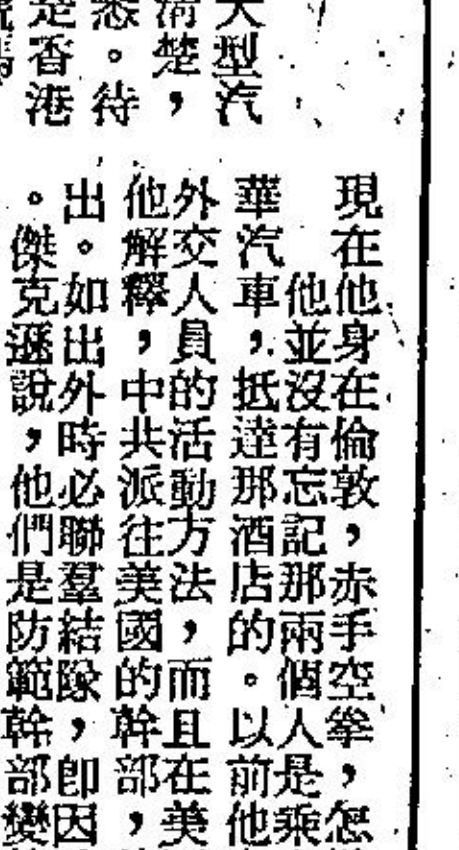 型汽
楚，
悉。待
香港
現在他身在倫敦，赤手空拳，怎
他並沒有忘記那兩個人是乘
華汽車，抵達那酒店的。以前他
外交人員的活動方法，而且在美
他解釋，中共派往美國的幹部，
出。如出外時必聯羣結隊，卽因
。傑克遜說，他們是防範幹部變